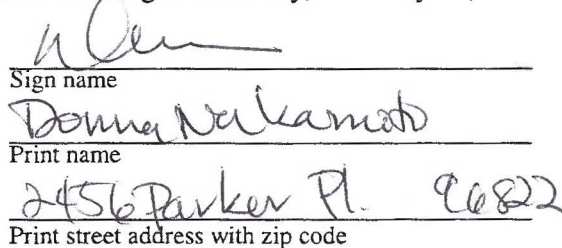 Sign name
Donna Nakamoto
Print name
2456 Parker Pl. 96822
Print street address with zip code